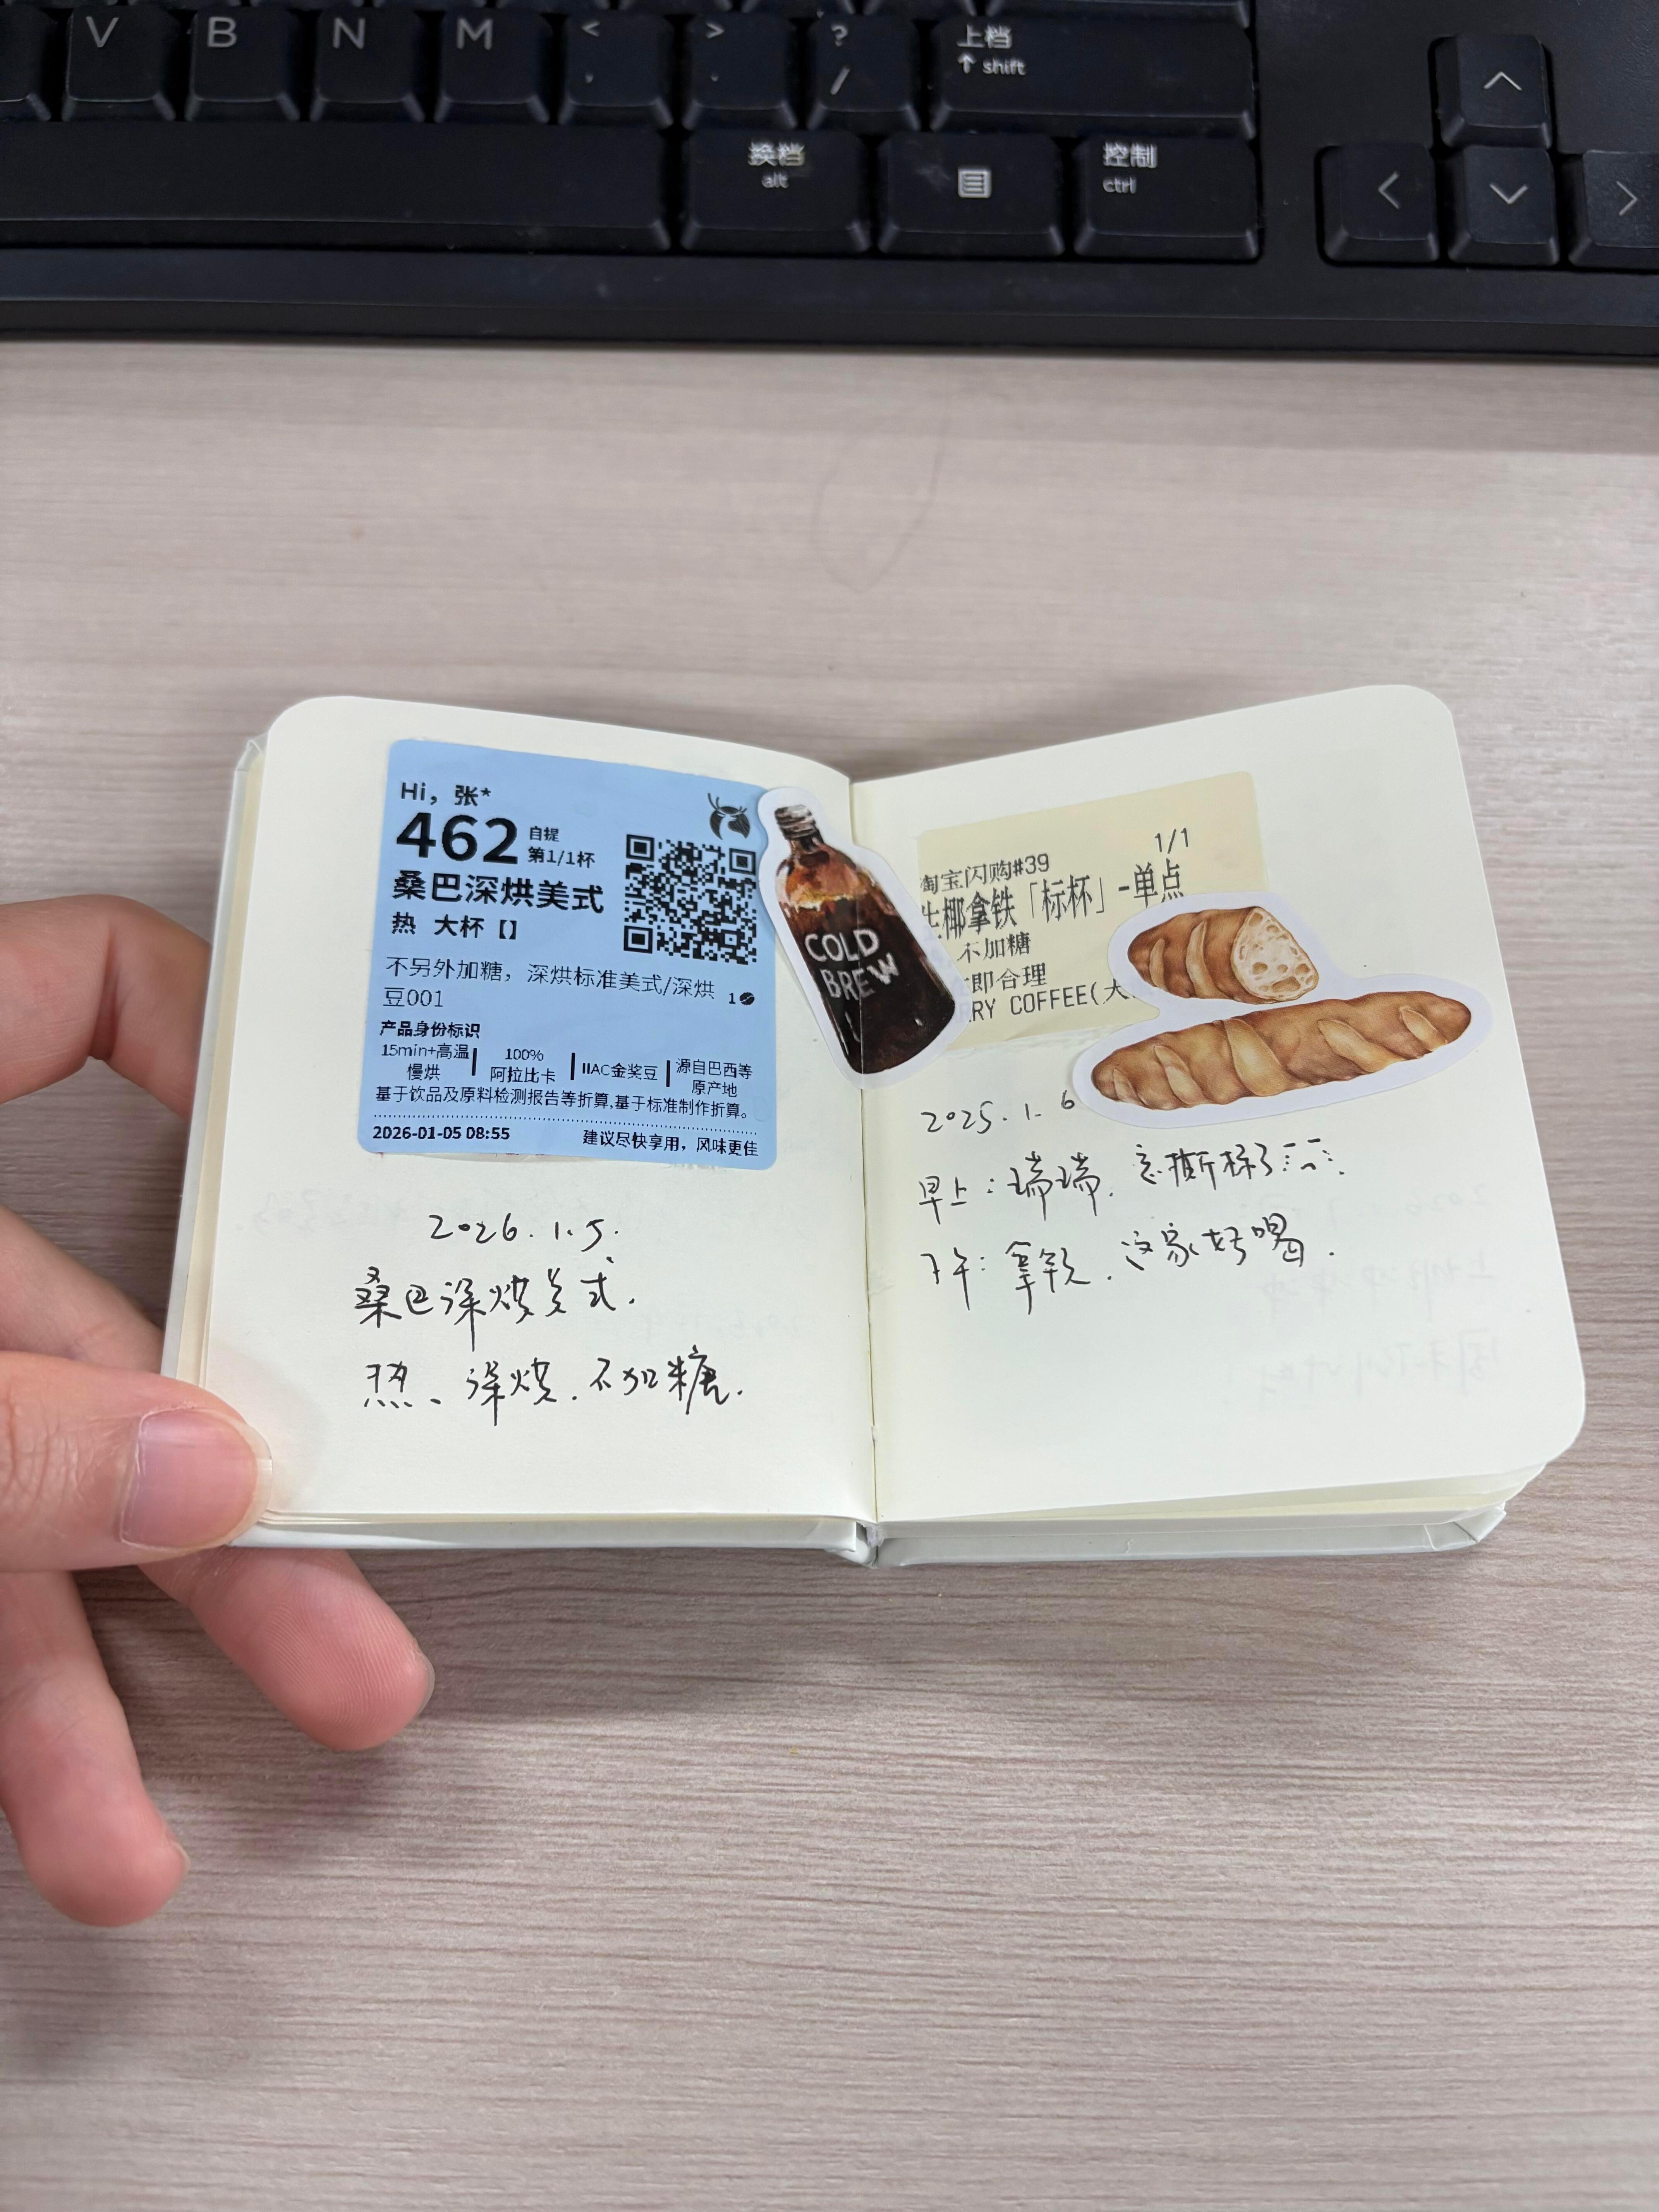 V
B
N
M
<
,
>
.
?
/
上档
↑ shift
换档
alt
控制
ctrl
Hi，张*
462 自提
第1/1杯
桑巴深烘美式
热 大杯【】
不另外加糖，深烘标准美式/深烘
豆001
1
产品身份标识
15min+高温
慢烘
100%
阿拉比卡
IIAC金奖豆
源自巴西等
原产地
基于饮品及原料检测报告等折算,基于标准制作折算。
2026-01-05 08:55
建议尽快享用，风味更佳
2026.1.5.
桑巴深烘美式.
热、深烘.不加糖.
COLD
BREW
1/1
淘宝闪购#39
生椰拿铁「标杯」-单点
不加糖
即合理
RRY COFFEE(大
2025.1.6
早上：瑞瑞.忘撕标了
下午：拿铁.这家好喝.